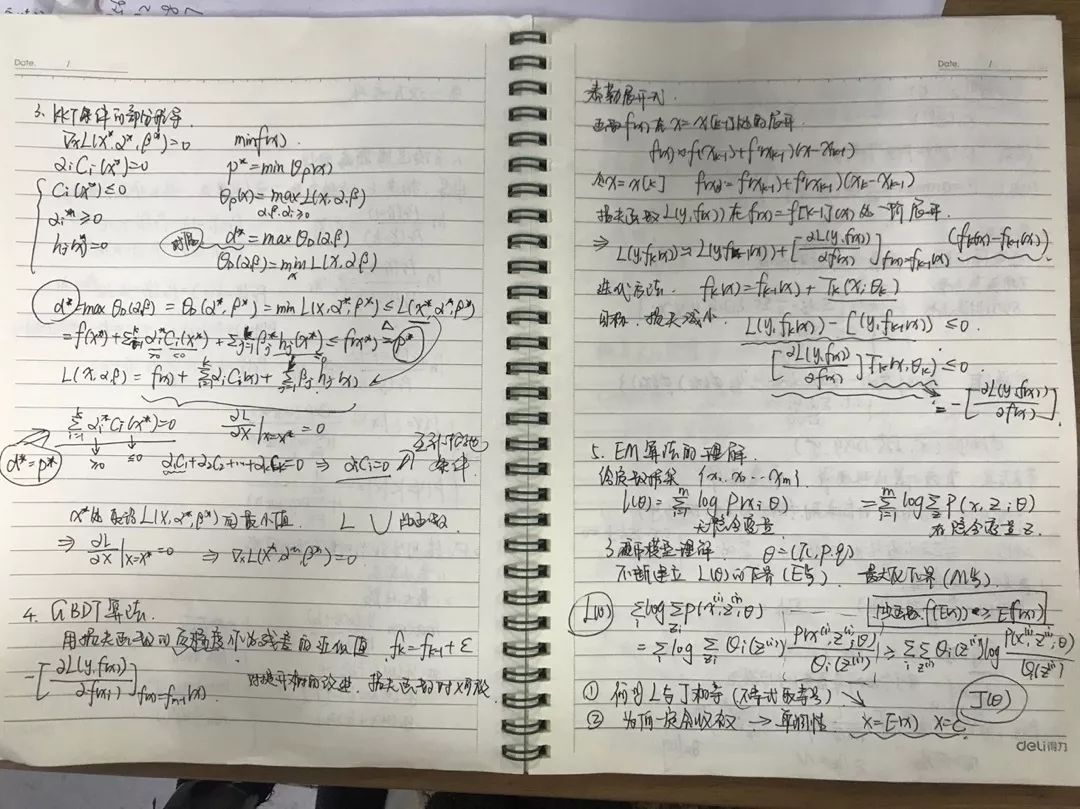 Date. /
3. KKT条件的部分推导.
∇xL(x*, α*, β*)=0    minf(x)
αiCi(x*)=0    p*=minθp(x)
Ci(x*)≤0    θp(x)=max L(x,α,β)
α,β,αi≥0
αi*≥0    对偶 d*=maxθD(α,β)
hj(x*)=0    θD(α,β)=min L(x,α,β)
x
d*=max θD(α,β) = θD(α*,β*) = min L(x,α*,β*) ≤ L(x*,α*,β*)
=f(x*)+∑αi*Ci(x*)+∑βj*hj(x*)≤f(x*)=p*
≥0 ≤0
L(x,α,β)= f(x)+∑αiCi(x)+∑βjhj(x)
∑αi*Ci(x*)=0    ∂L/∂x|x=x* =0
≥0 ≤0
d*=p*    α1C1+α2C2+…+αkCk=0 ⇒ αiCi=0    互补松弛条件
x*的取得L(x,α*,β*)的最小值.    L    凸函数
⇒ ∂L/∂x|x=x* =0 ⇒ ∇xL(x*,α*,β*)=0
4. GBDT算法
用损失函数的负梯度作为残差的近似值. fk=fk-1+ε
-[∂L(y,f(x))/∂f(x)]f(x)=fk-1(x)    对提升树的改进. 损失函数时
Date. /
泰勒展开式.
函数f(x)在x=x[k-1]处的展开.
f(x)≈f(xk-1)+f'(xk-1)(x-xk-1)
令x=x[k]    f(xk)=f(xk-1)+f'(xk-1)(xk-xk-1)
损失函数L(y,f(x))在f(x)=f[k-1](x)处一阶展开.
⇒ L(y,fk(x))≈L(y,fk-1(x))+[∂L(y,f(x))/∂f(x)]f(x)=fk-1(x) (fk(x)-fk-1(x))
迭代方法. fk(x)=fk-1(x)+Tk(x;θk)
目标. 损失减小. L(y,fk(x))-L(y,fk-1(x))≤0.
[∂L(y,f(x))/∂f(x)]Tk(x,θk)≤0
=-[∂L(y,f(x))/∂f(x)]
5. EM算法的理解.
给定数据集 {x1,x2…xm}.
l(θ)=∑log p(x;θ)    =∑log∑p(x,z;θ)
无隐含变量    有隐含变量z.
3硬币模型理解    θ=(π,p,q)
不断建立L(θ)的下界(E步). 最大化下界(M步).
L(θ) ∑log∑p(x⁽ⁱ⁾,z⁽ⁱ⁾;θ)    f(E(x))≥E(f(x))
=∑log∑Qi(z⁽ⁱ⁾) p(x⁽ⁱ⁾,z⁽ⁱ⁾;θ)/Qi(z⁽ⁱ⁾) ≥ ∑∑Qi(z⁽ⁱ⁾)log p(x⁽ⁱ⁾,z⁽ⁱ⁾;θ)/Qi(z⁽ⁱ⁾)
① 何时L与J相等(不等式取等号)    J(θ)
② 为何一定会收敛 → 单调性    x=E(x) x=C
deli得力